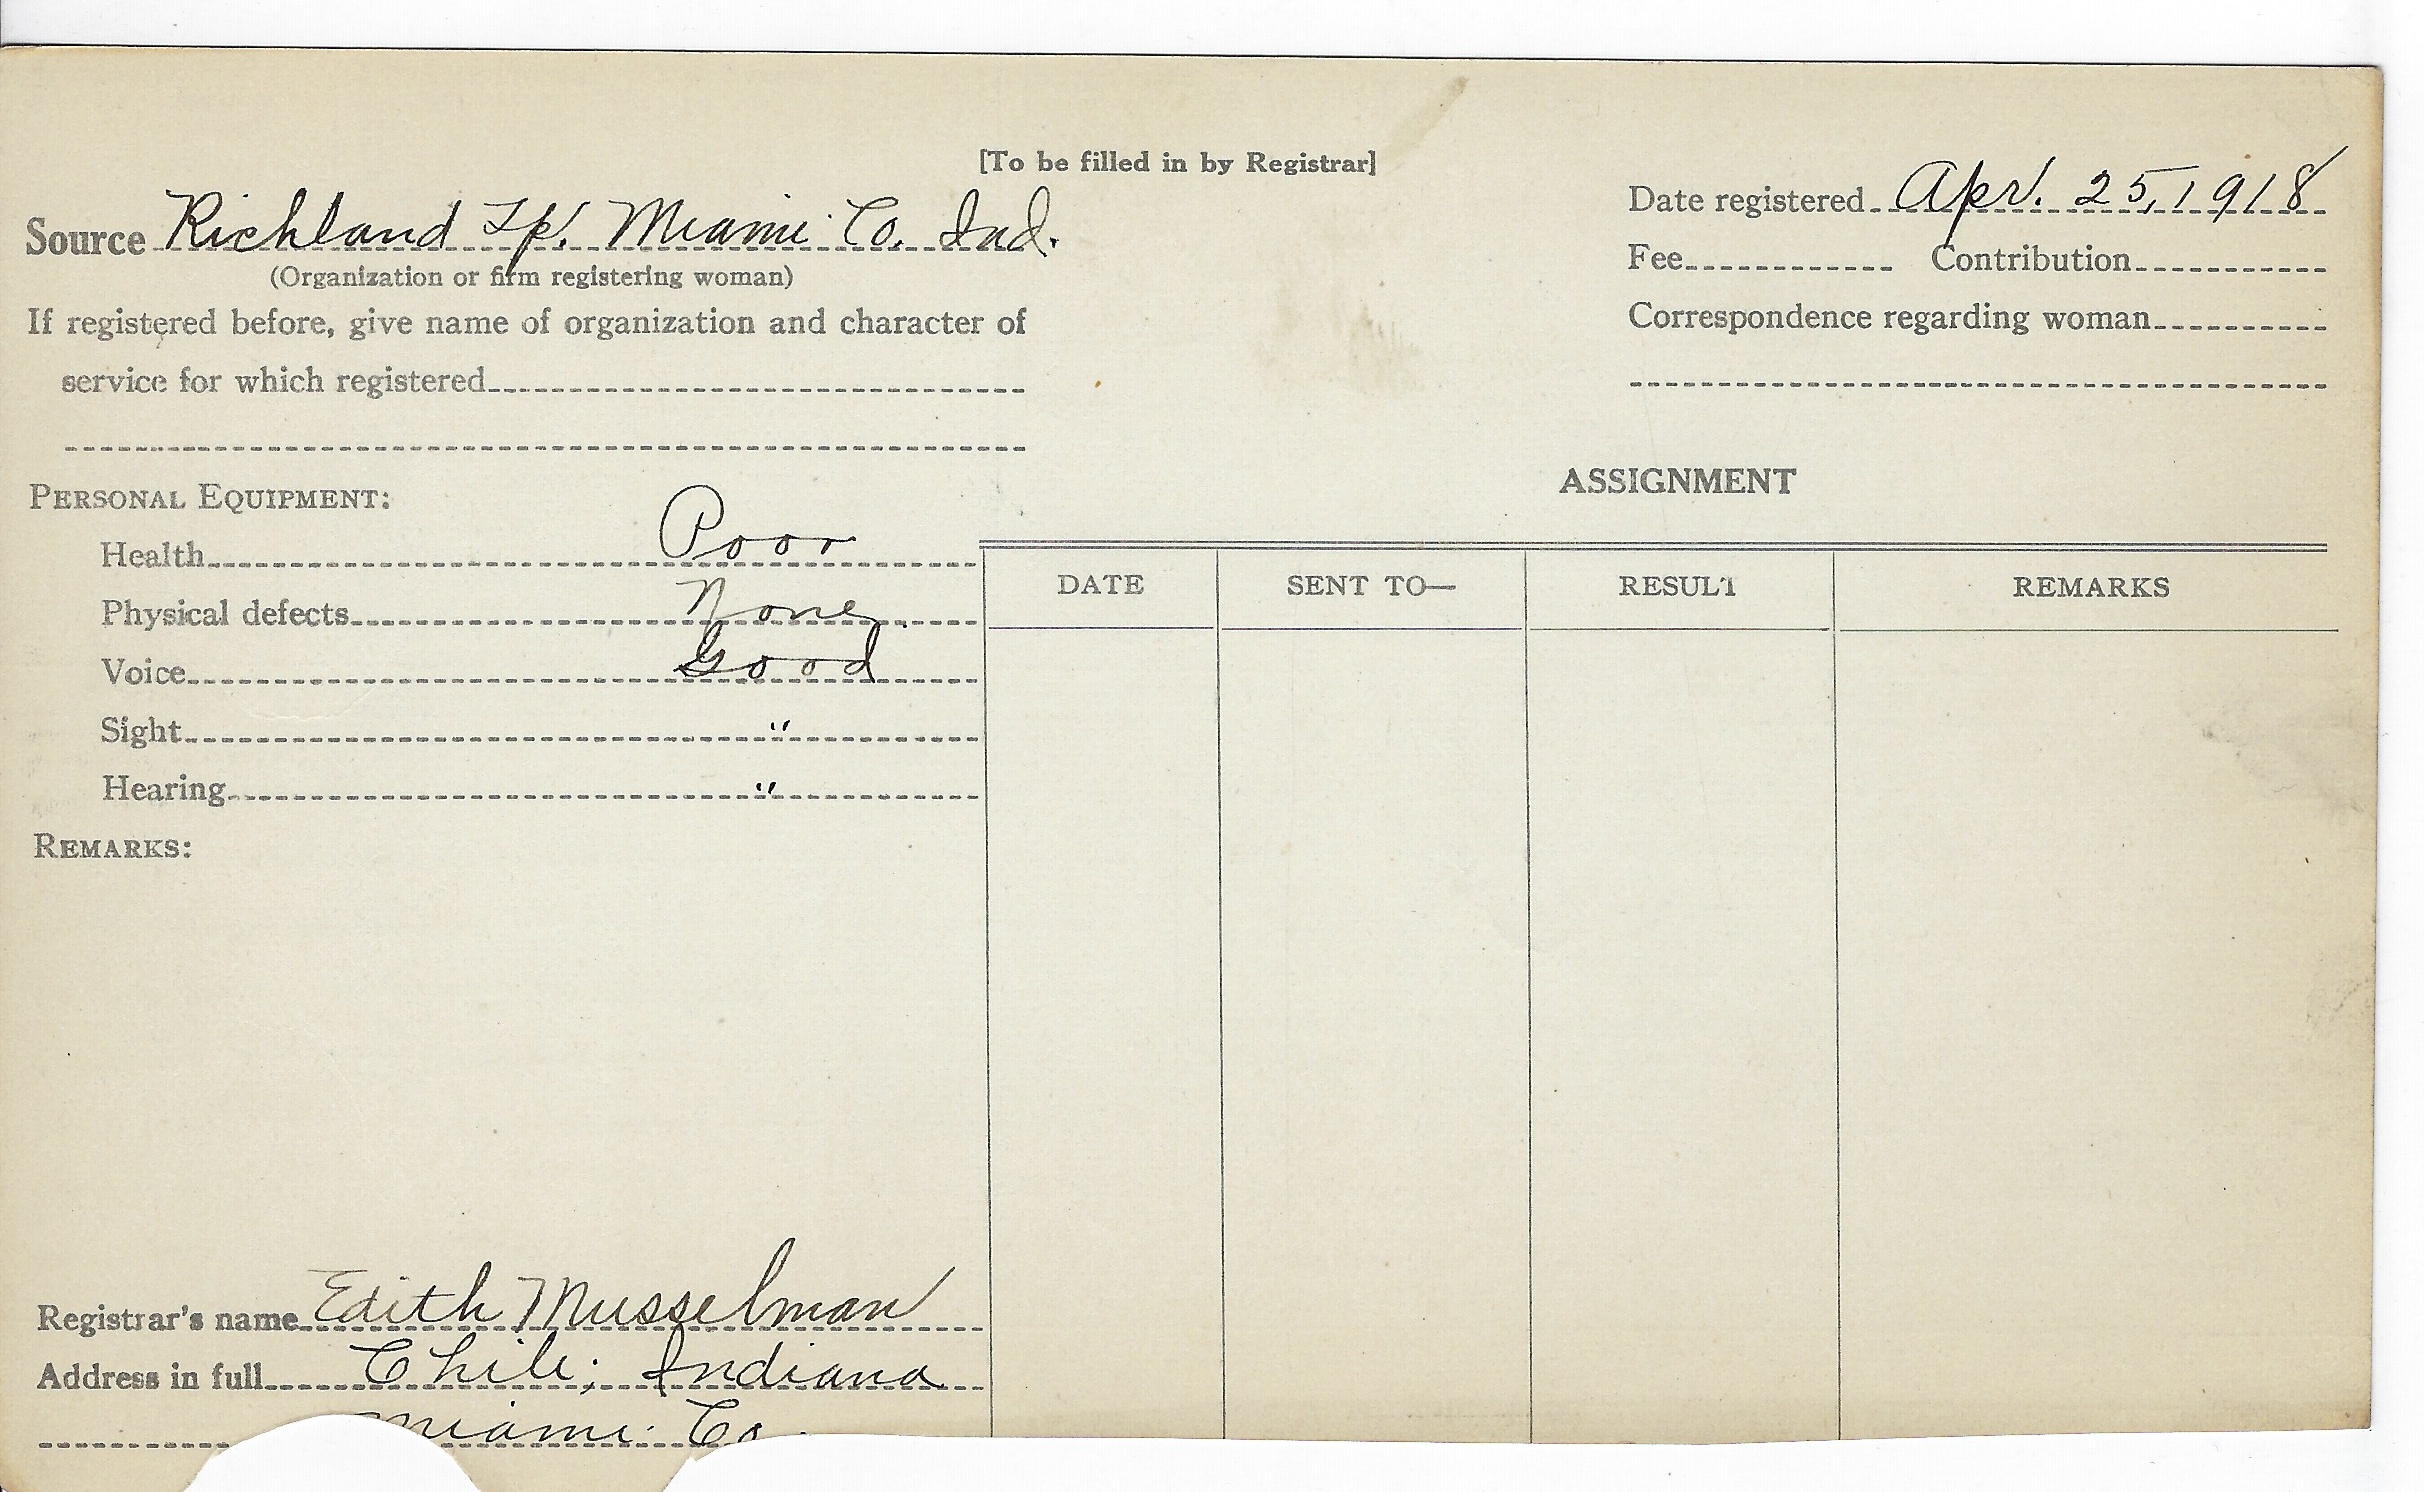 [To be filled in by Registrar]
Source Richland Tp. Miami Co. Ind.
(Organization or firm registering woman)
If registered before, give name of organization and character of
service for which registered
Date registered Apr. 25, 1918
Fee Contribution
Correspondence regarding woman
PERSONAL EQUIPMENT:
Health Poor
Physical defects None.
Voice Good
Sight "
Hearing "
REMARKS:
ASSIGNMENT
DATE SENT TO— RESULT REMARKS
Registrar's name Edith Musselman
Address in full Chili; Indiana
Miami Co.